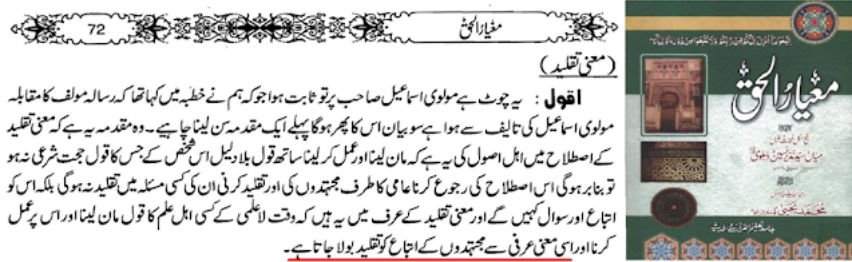 72
معیار الحق
(معنی تقلید)
اقول : یہ چوٹ ہے مولوی اسماعیل صاحب پر تو ثابت ہوا جو کہ ہم نے خطبہ میں کہا تھا کہ رسالہ مولف کا مقابلہ
مولوی اسماعیل کی تالیف سے ہوا ہے سو بیان اس کا پھر ہوگا پہلے ایک مقدمہ سن لینا چاہیے۔ وہ مقدمہ یہ ہے کہ معنی تقلید
کے اصطلاح میں اہل اصول کی یہ ہے کہ مان لینا اور عمل کر لینا ساتھ قول بلا دلیل اس شخص کے جس کا قول حجت شرعی نہ ہو
تو بنا بر ہوگی اس اصطلاح کی رجوع کرنا عامی کا طرف مجتہدوں کی اور تقلید کرنی ان کی کسی مسئلہ میں تقلید نہ ہوگی بلکہ اس کو
اتباع اور سوال کہیں گے اور معنی تقلید کے عرف میں یہ ہیں کہ وقت لا علمی کے کسی اہل علم کا قول مان لینا اور اس پر عمل
کرنا اور اسی معنی عرفی سے مجتہدوں کے اتباع کو تقلید بولا جاتا ہے۔
معیار الحق